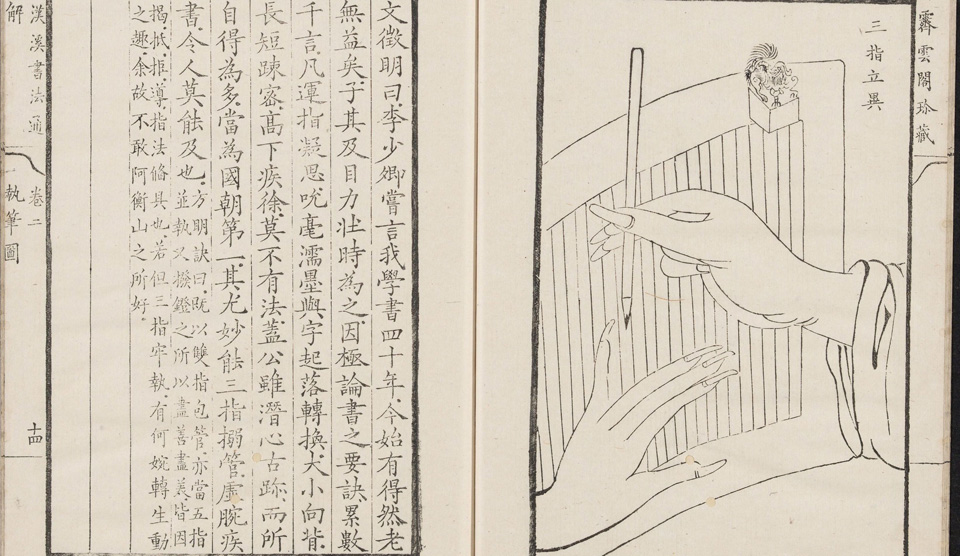 霽雲閣珍藏
三指立異
文徵明曰李少卿嘗言我學書四十年今始有得然老
無益矣子其及目力壯時為之因極論書之要訣累數
千言凡運指凝思吮毫濡墨與字起落轉換大小向背
長短踈密高下疾徐莫不有法蓋公雖潛心古跡而所
自得為多當為國朝第一其尤妙能三指搦管虛腕疾
書令人莫能及也
方明訣曰既以雙指包管亦當五指
並執又撥鐙之所以盡善盡美皆因
揭抵拒導指法俻具也若但三指牢執有何婉轉生動
之趣余故不敢阿衡山之所好
漢溪書法通
解
卷二
執筆圖
十四